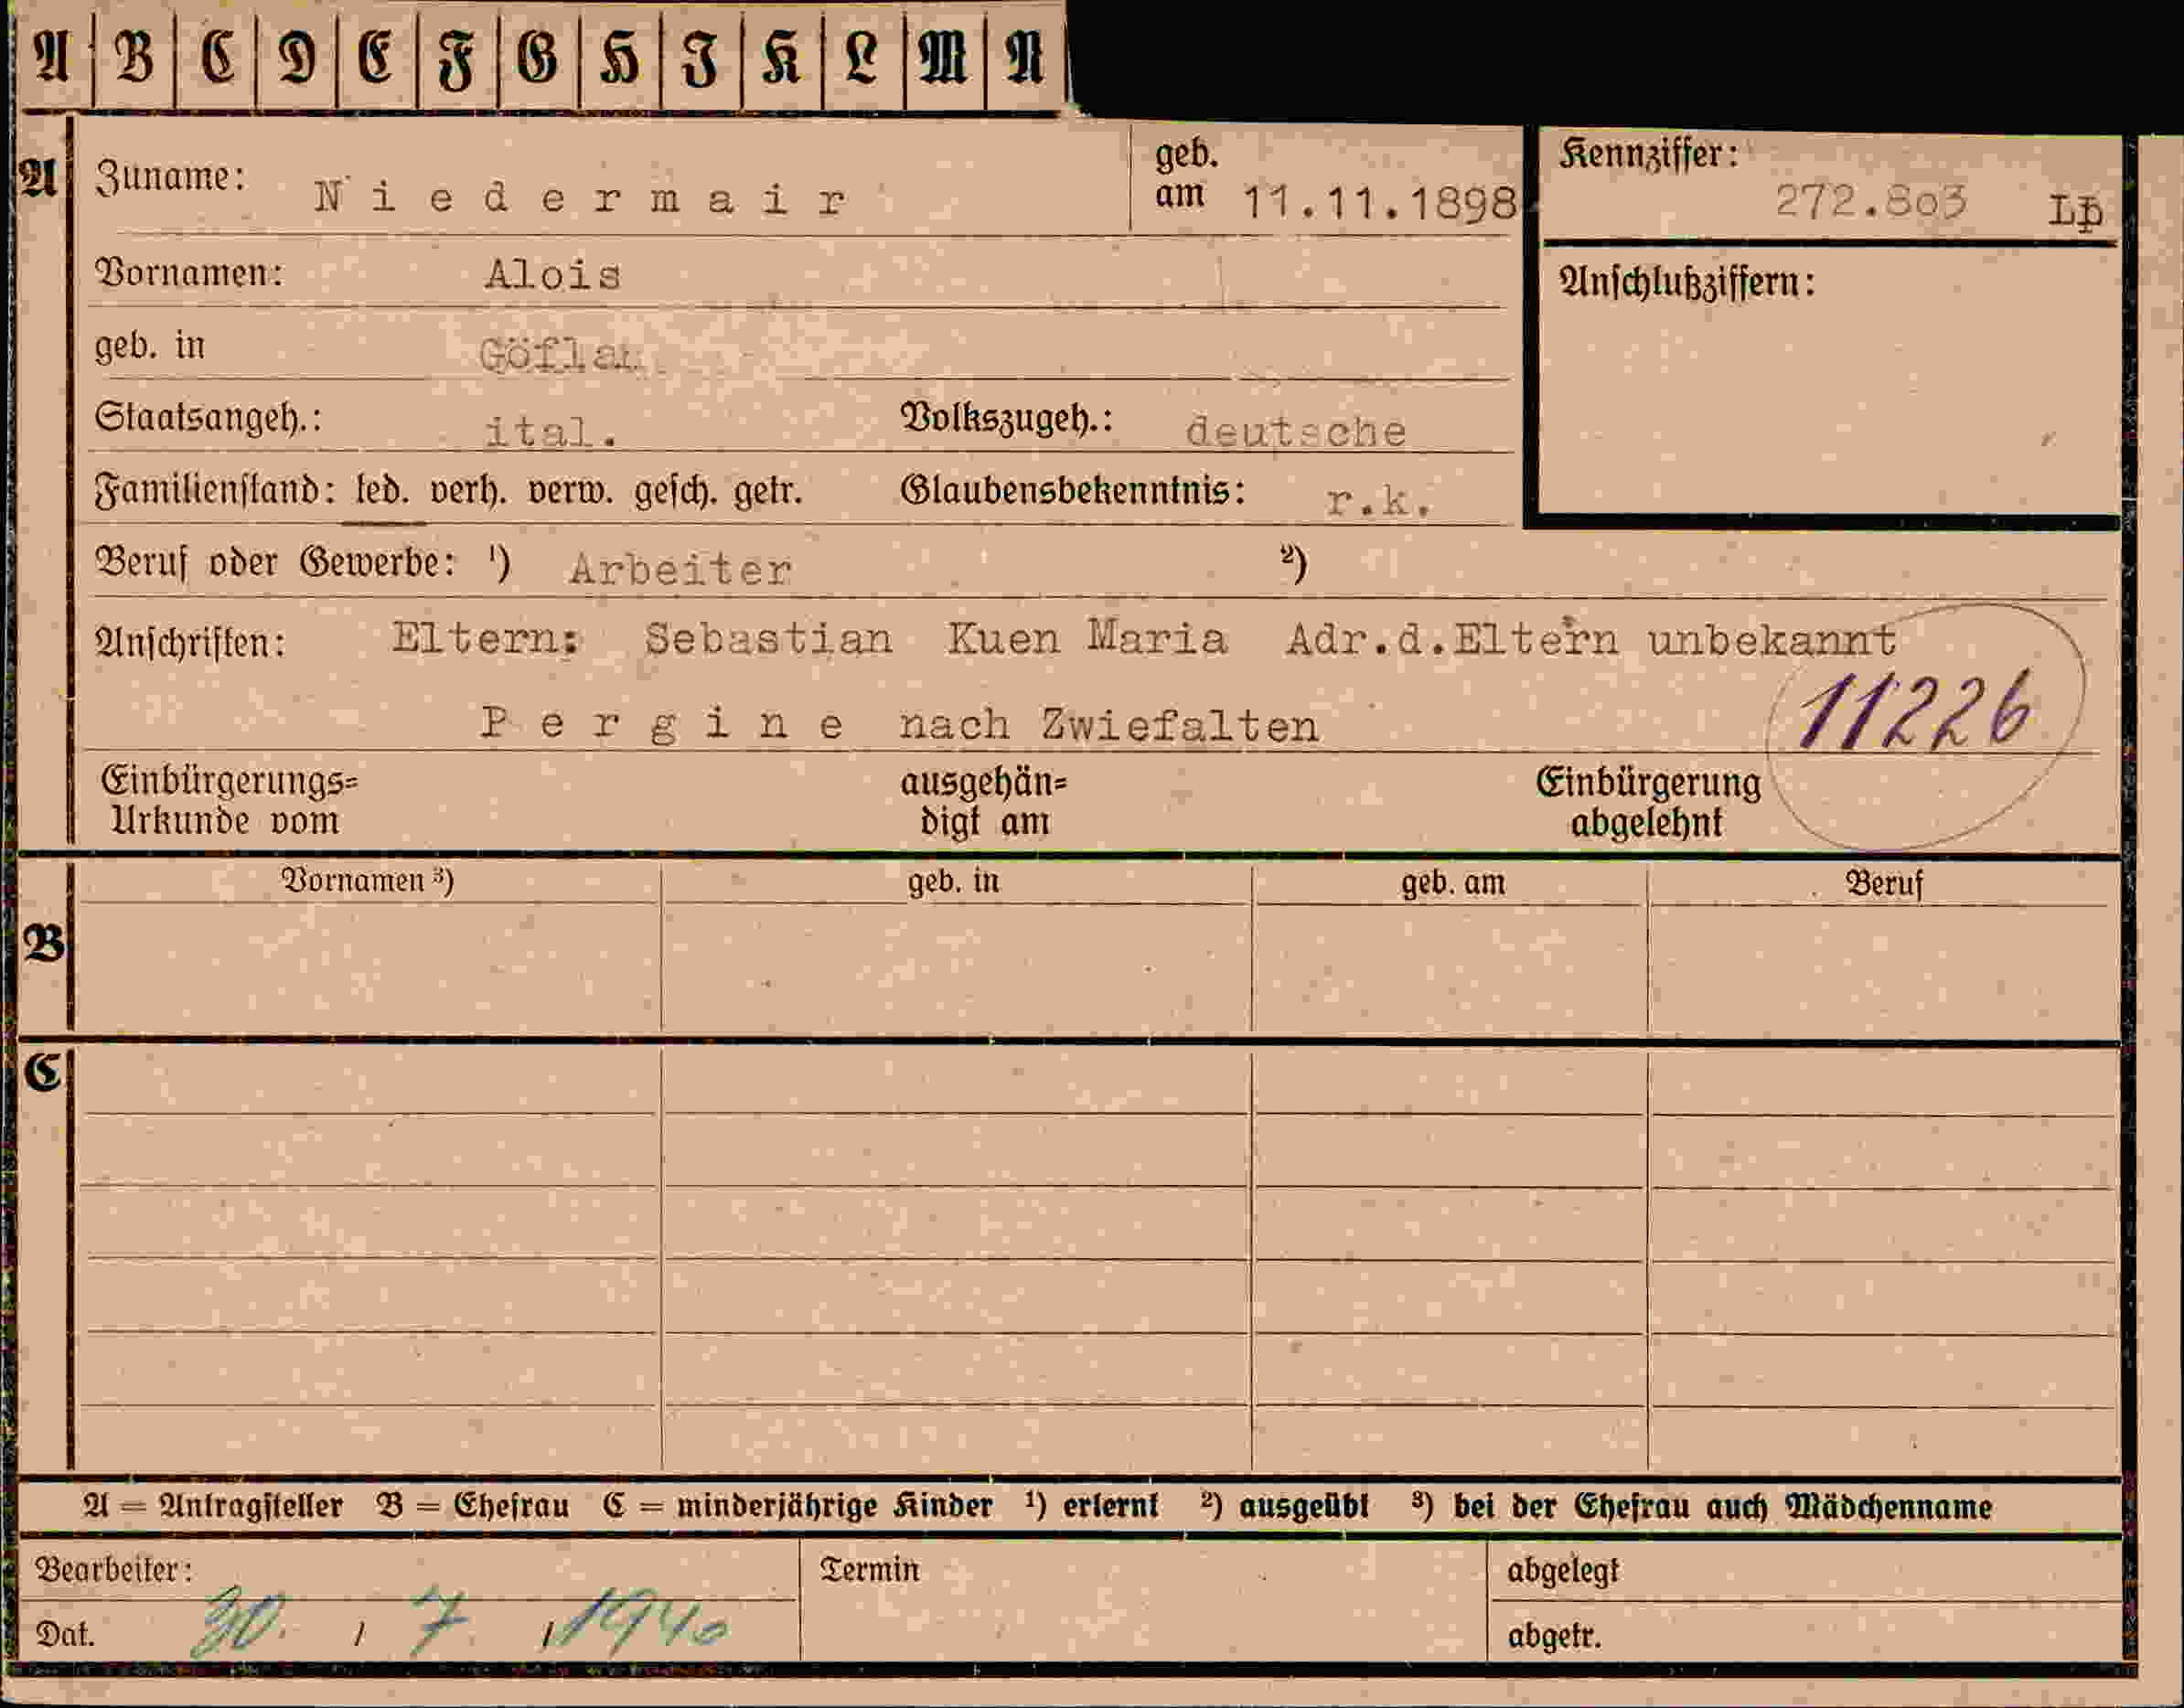 A B C D E F G H I K L M N
A Zuname: Niedermair geb. am 11.11.1898 Kennziffer: 272.803
Vornamen: Alois Anschlußziffern:
geb. in Göflan
Staatsangeh.: ital. Volkszugeh.: deutsche
Familienstand: led. verh. verw. gesch. getr. Glaubensbekenntnis: r.k.
Beruf oder Gewerbe: ¹) Arbeiter ²)
Anschriften: Eltern: Sebastian Kuen Maria Adr.d.Eltern unbekannt
Pergine nach Zwiefalten 11226
Einbürgerungs= ausgehän= Einbürgerung
Urkunde vom digt am abgelehnt
B Vornamen ³) geb. in geb. am Beruf
C
A = Antragsteller B = Ehefrau C = minderjährige Kinder ¹) erlernt ²) ausgeübt ³) bei der Ehefrau auch Mädchenname
Bearbeiter: Termin abgelegt
Dat. 30. / 7 / 1940 abgetr.